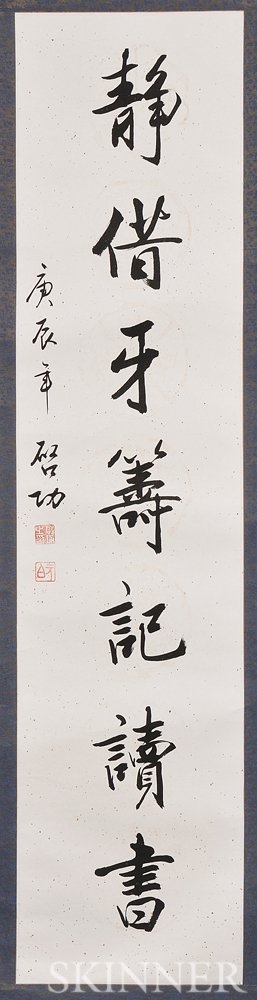 靜借牙籌記讀書
庚辰年 啓功
SKINNER